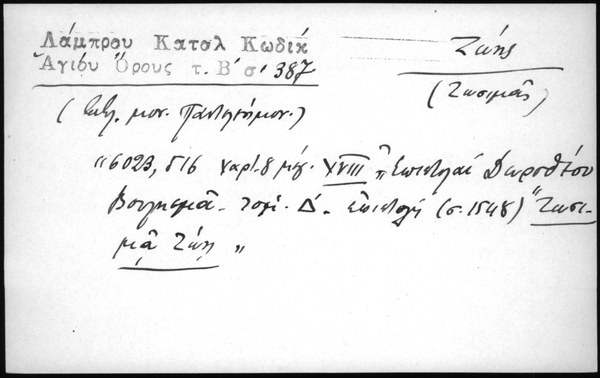 Λάμπρου Κατολ Κωδίκ
Ἁγίου Ὄρους τ. Β΄ σ. 387
Ζώης
(Ζωσιμᾶς)
(Βιβλ. μον. Παντελεήμον.)
"6023, 516 χαρτ. 8 μεγ. XVIII "Ἐπιστολαὶ Δωροθέου
Βουλησμᾶ - Τόμ. Δ΄. Ἐπιστολὴ (σ. 154β) "Ζωσι-
μᾷ Ζώῃ "